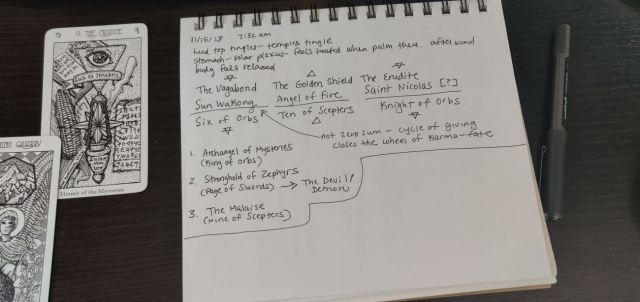 9. THE ERUDITE
LUX EX TENEBRIS
Hermit of the Mysteries
11/15/18 7:32 am
head top tingles - temples tingle
stomach - solar plexus - feels heated when palm there. afterward
body feels relaxed
The Vagabond The Golden Shield The Erudite
Sun Wukong Angel of Fire Saint Nicolas [?]
Six of Orbs Ten of Scepters Knight of Orbs
not zero sum - cycle of giving
closes the wheel of karma - fate
1. Archangel of Mysteries
(King of Orbs)
2. Stronghold of Zephyrs
(Page of Swords) → The Devil/
Demon
3. The Malaise
(Nine of Scepters)